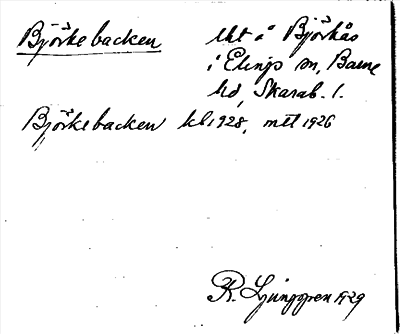 Björkebacken
lht å Björkås
i Elings sn, Barne
hd, Skarab. l.
Björkebacken kb 1928, mtl 1926
R. Ljunggren 1929